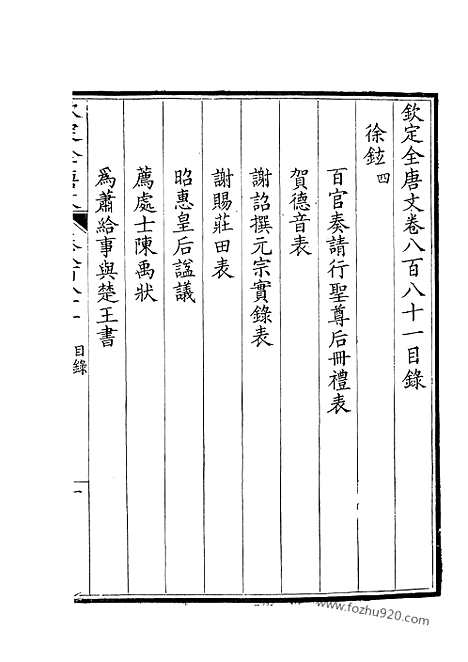 欽定全唐文卷八百八十一目錄
徐鉉 四
百官奏請行聖尊后冊禮表
賀德音表
謝詔撰元宗實錄表
謝賜莊田表
昭惠皇后諡議
薦處士陳禹狀
為蕭給事與楚王書
目錄
一
www.fozhu920.com